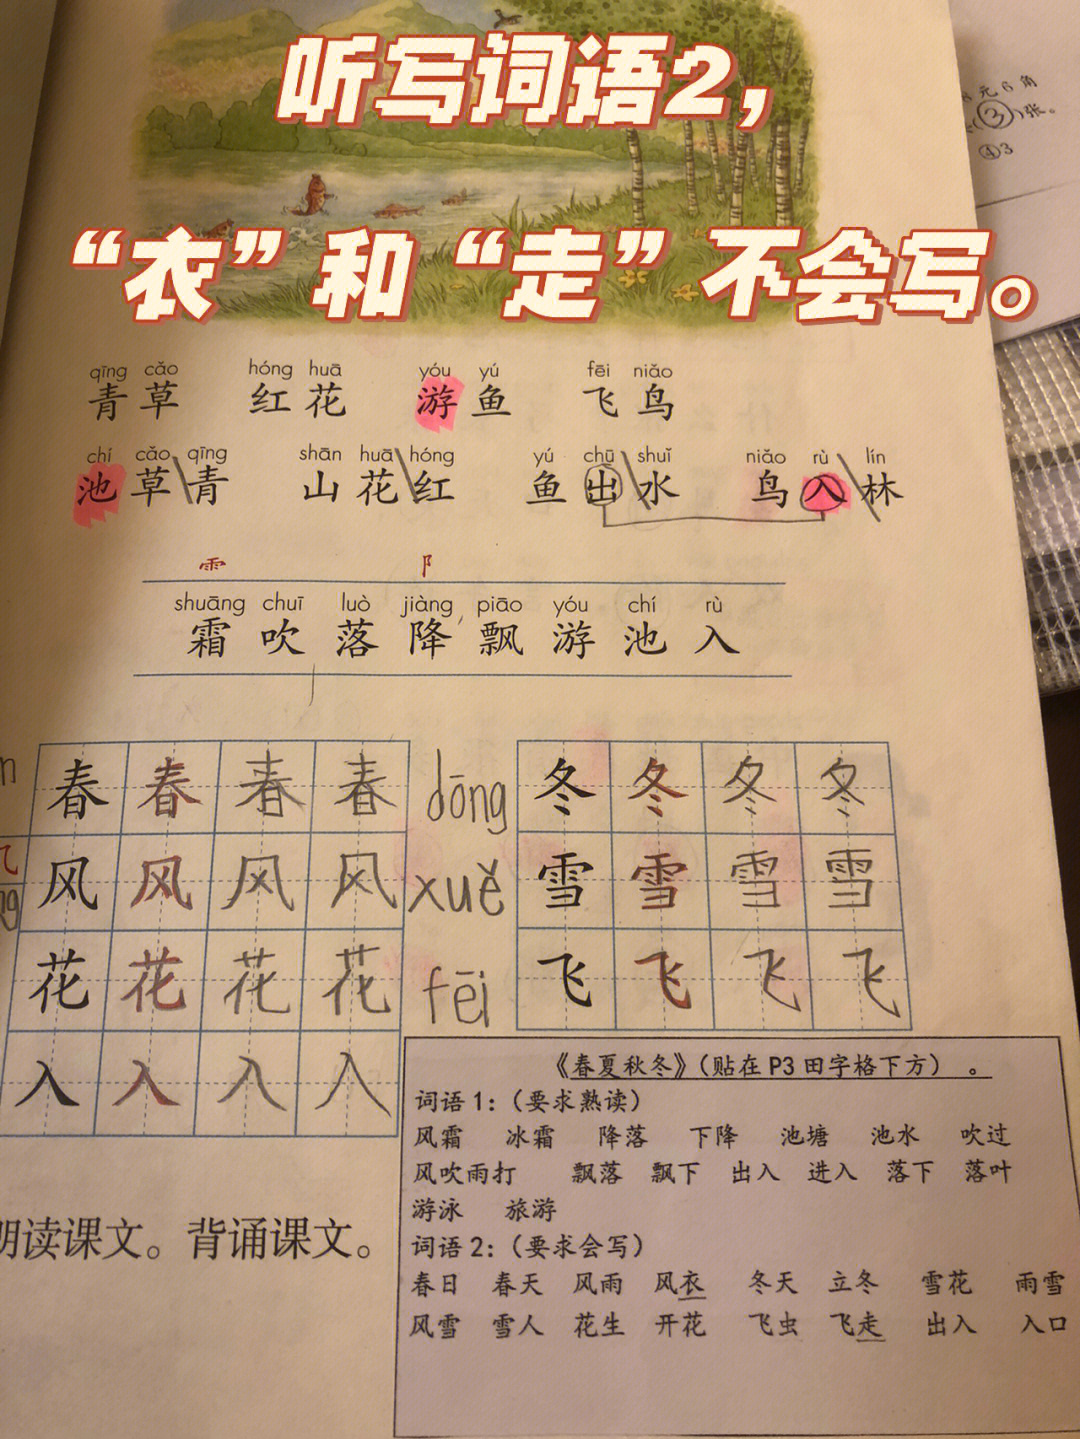 听写词语2，
“衣”和“走”不会写。
8元6角
(3)张。
④3
qīng cǎo hóng huā yóu yú fēi niǎo
青草 红花 游鱼 飞鸟
chí cǎo qīng shān huā hóng yú chū shuǐ niǎo rù lín
池草青 山花红 鱼出水 鸟入林
⻗ 阝
shuāng chuī luò jiàng piāo yóu chí rù
霜 吹 落 降 飘 游 池 入
春 春 春 春 dōng 冬 冬 冬 冬
风 风 风 风 xuě 雪 雪 雪 雪
花 花 花 花 fēi 飞 飞 飞 飞
入 入 入 入
《春夏秋冬》（贴在 P3 田字格下方）。
词语 1：（要求熟读）
风霜 冰霜 降落 下降 池塘 池水 吹过
风吹雨打 飘落 飘下 出入 进入 落下 落叶
游泳 旅游
词语 2：（要求会写）
春日 春天 风雨 风衣 冬天 立冬 雪花 雨雪
风雪 雪人 花生 开花 飞虫 飞走 出入 入口
朗读课文。背诵课文。